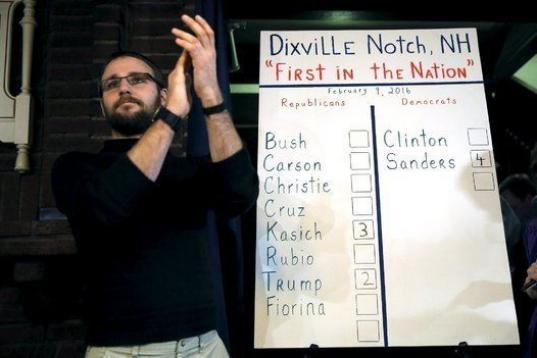 DIXVILLE NOTCH, NH
"FIRST IN THE NATION"
February 9, 2016
Republicans Democrats
Bush
Carson
Christie
Cruz
Kasich 3
Rubio
Trump 2
Fiorina
Clinton
Sanders 4